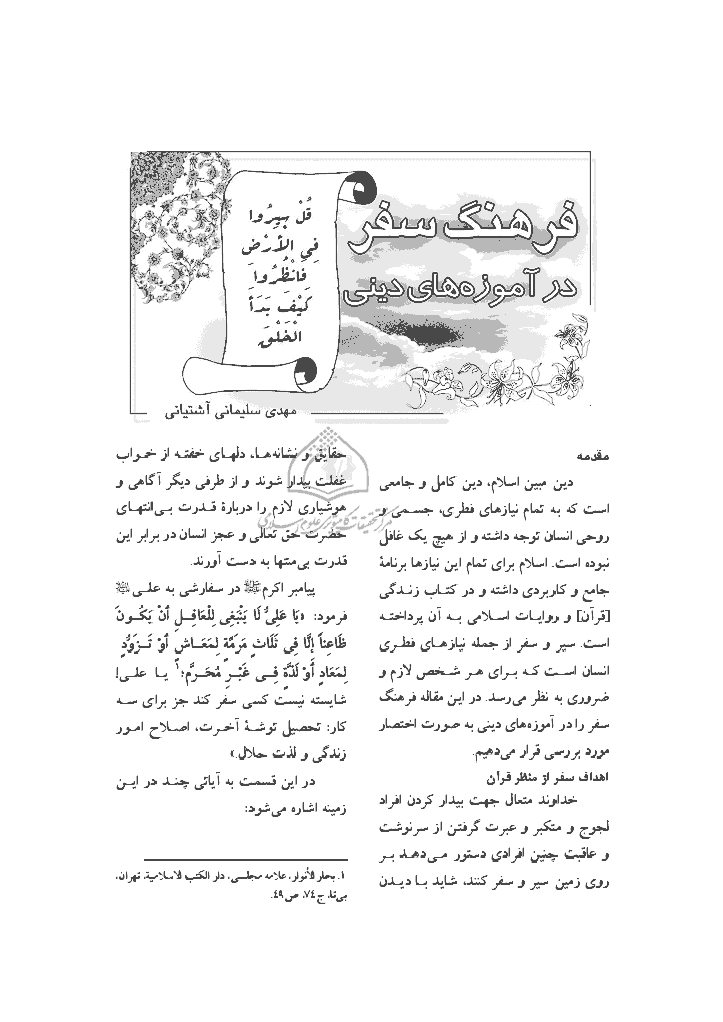 فرهنگ سفر
در آموزه‌های دینی
قُلْ سِيرُوا
فِي الأَرْضِ
فَانْظُرُوا
كَيْفَ بَدَأَ
الْخَلْقَ
مهدی سلیمانی آشتیانی
مقدمه
دین مبین اسلام، دین کامل و جامعی
است که به تمام نیازهای فطری، جسمی و
روحی انسان توجه داشته و از هیچ یک غافل
نبوده است. اسلام برای تمام این نیازها برنامۀ
جامع و کاربردی داشته و در کتاب زندگی
[قرآن] و روایات اسلامی به آن پرداخته
است. سیر و سفر از جمله نیازهای فطری
انسان است که برای هر شخص لازم و
ضروری به نظر می‌رسد. در این مقاله فرهنگ
سفر را در آموزه‌های دینی به صورت اختصار
مورد بررسی قرار می‌دهیم.
اهداف سفر از منظر قرآن
خداوند متعال جهت بیدار کردن افراد
لجوج و متکبر و عبرت گرفتن از سرنوشت
و عاقبت چنین افرادی دستور می‌دهد بر
روی زمین سیر و سفر کنند، شاید با دیدن
حقایق و نشانه‌ها، دلهای خفته از خواب
غفلت بیدار شوند و از طرفی دیگر آگاهی و
هوشیاری لازم را دربارۀ قدرت بی‌انتهای
حضرت حق تعالی و عجز انسان در برابر این
قدرت بی‌منتها به دست آورند.
پیامبر اکرمﷺ در سفارشی به علی
فرمود: «يَا عَلِيُّ لَا يَنْبَغِي لِلْعَاقِلِ أَنْ يَكُونَ
ظَاعِناً إِلَّا فِي ثَلَاثٍ مَرَمَّةٍ لِمَعَاشٍ أَوْ تَزَوُّدٍ
لِمَعَادٍ أَوْ لَذَّةٍ فِي غَيْرِ مُحَرَّمٍ؛۱ یا علی!
شایسته نیست کسی سفر کند جز برای سه
کار: تحصیل توشۀ آخرت، اصلاح امور
زندگی و لذت حلال.»
در این قسمت به آیاتی چند در این
زمینه اشاره می‌شود:
۱. بحار الأنوار، علامه مجلسی، دار الکتب الاسلامیة، تهران،
بی‌تا، ج ۷۴، ص ۴۹.
مرکز تحقیقات کامپیوتری علوم اسلامی